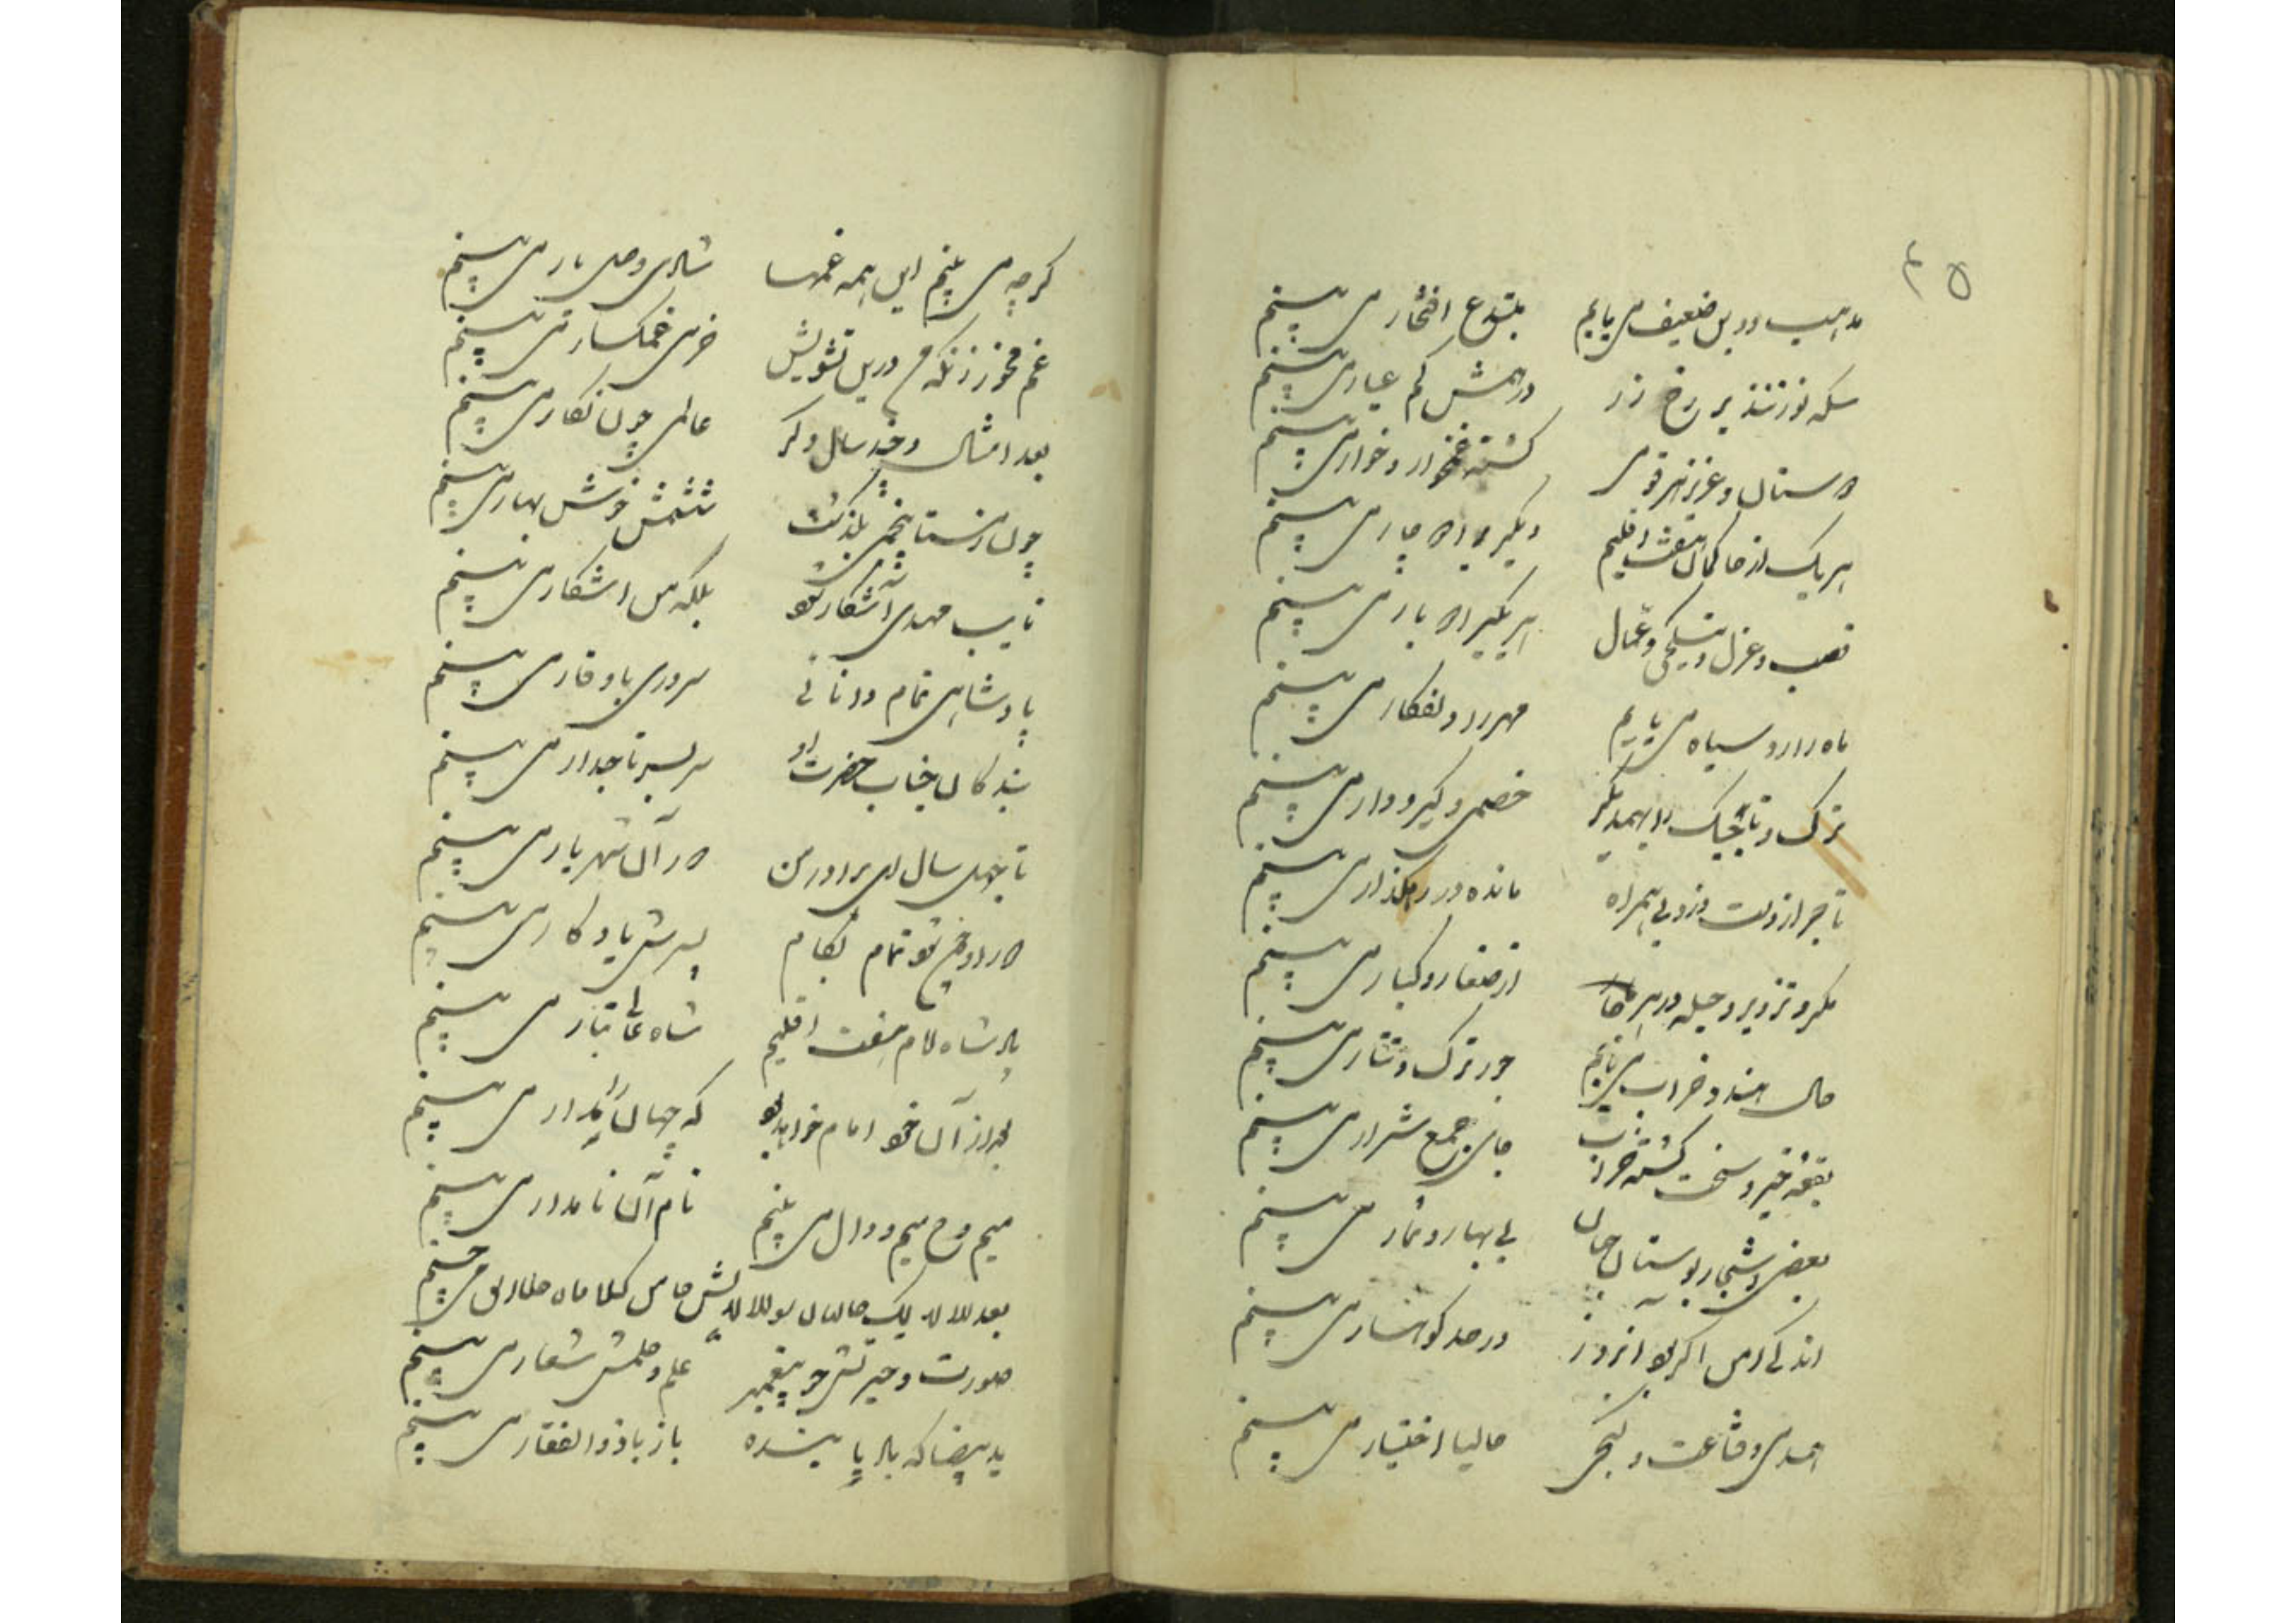 ۴۵
مذهب و دین ضعیف می یابم مبتدع افتخار می بینم
سکه نو زنند بر رخ زر درهمش کم عیار می بینم
دوستان و عزیز هر قومی گشته غمخوار و خوار می بینم
هر یک از حاکمان هفت اقلیم دیگری را دچار می بینم
نصب و عزل و عمال هر یکی را بار می بینم
ماه را رو سیاه می یابم مهر را دلفکار می بینم
ترک و تاجیک را بهمدیگر خصمی و گیر و دار می بینم
تاجر از دست دزد بی همراه مانده در رهگذار می بینم
مکر و تزویر و حیله در هر جا از صغار و کبار می بینم
حال هندو خراب می یابم جور ترک و تتار می بینم
بقعه خیر سخت گشته خراب جای جمع شرار می بینم
بعضی اشجار بوستان جهان بی بهار و ثمار می بینم
اندکی امن اگر بود آنروز در حد کوهسار می بینم
همدمی و قناعت و کنجی حالیا اختیار می بینم
گرچه می بینم این همه غمها شادی وصل یار می بینم
غم مخور زانکه من درین تشویش خرمی غمگسار می بینم
بعد امسال و چند سال دگر عالمی چون نگار می بینم
چون زمستان پنجمین بگذشت ششمش خوش بهار می بینم
نایب مهدی آشکار شود بلکه من آشکار می بینم
پادشاهی تمام دانائی سروری باوقار می بینم
بندگان جناب حضرت او سر بسر تاجدار می بینم
تا چهل سال ای برادر من دور آن شهریار می بینم
دور او چون شود تمام بکام پسرش یادگار می بینم
پادشاه امام هفت اقلیم شاه عالی تبار می بینم
بعد از آن خود امام خواهد بود که جهان را مدار می بینم
میم و ح میم و دال می بینم نام آن نامدار می بینم
صورت و سیرتش چو پیغمبر علم و حلمش شعار می بینم
ید بیضا که باد پاینده باز با ذوالفقار می بینم